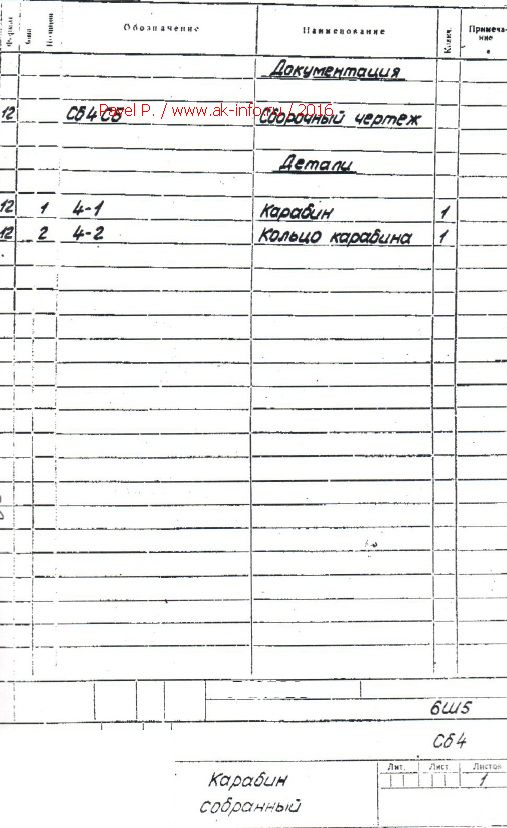 Формат
Зона
Позиция
Обозначение
Наименование
Колич.
Примеча-
ние
Документация
12 Сб4 СБ Сборочный чертеж
Pavel P. / www.ak-info.ru / 2016
Детали
12 1 4-1 Карабин 1
12 2 4-2 Кольцо карабина 1
6Ш5
Сб4
Карабин
собранный
Лит. Лист Листов
1